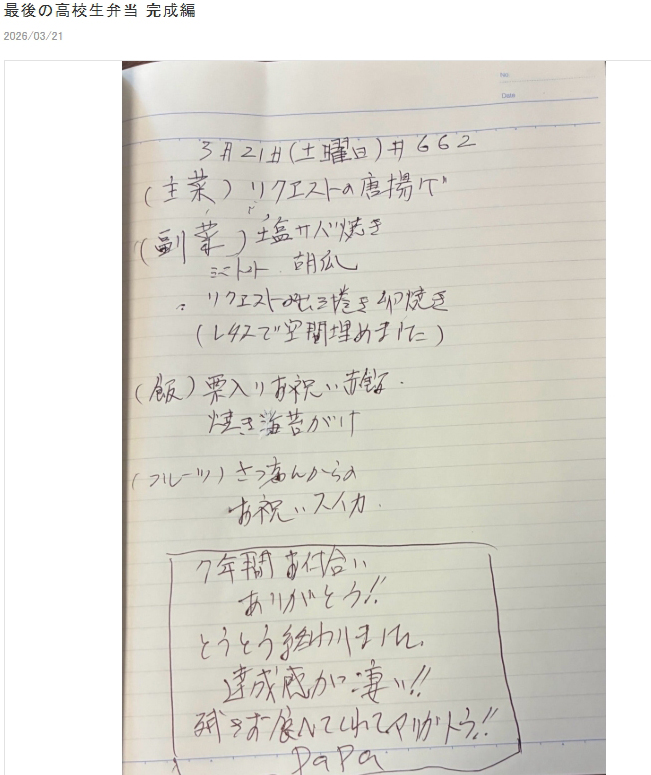 最後の高校生弁当 完成編
2026/03/21
No.
Date
3月21日(土曜日)#662
(主菜)リクエストの唐揚げ
(副菜)塩サバ焼き
ミニトマト 胡瓜
リクエストの出し巻き卵焼き
(レタスで空間埋めました)
(飯)栗入りお祝い赤飯.
焼き海苔がけ
(フルーツ)さっあんからの
お祝いスイカ.
7年間お付合い
ありがとう!!
とうとう終わりました。
達成感がつ凄い!!
残さず食べてくれてアリガトウ!!
PaPa